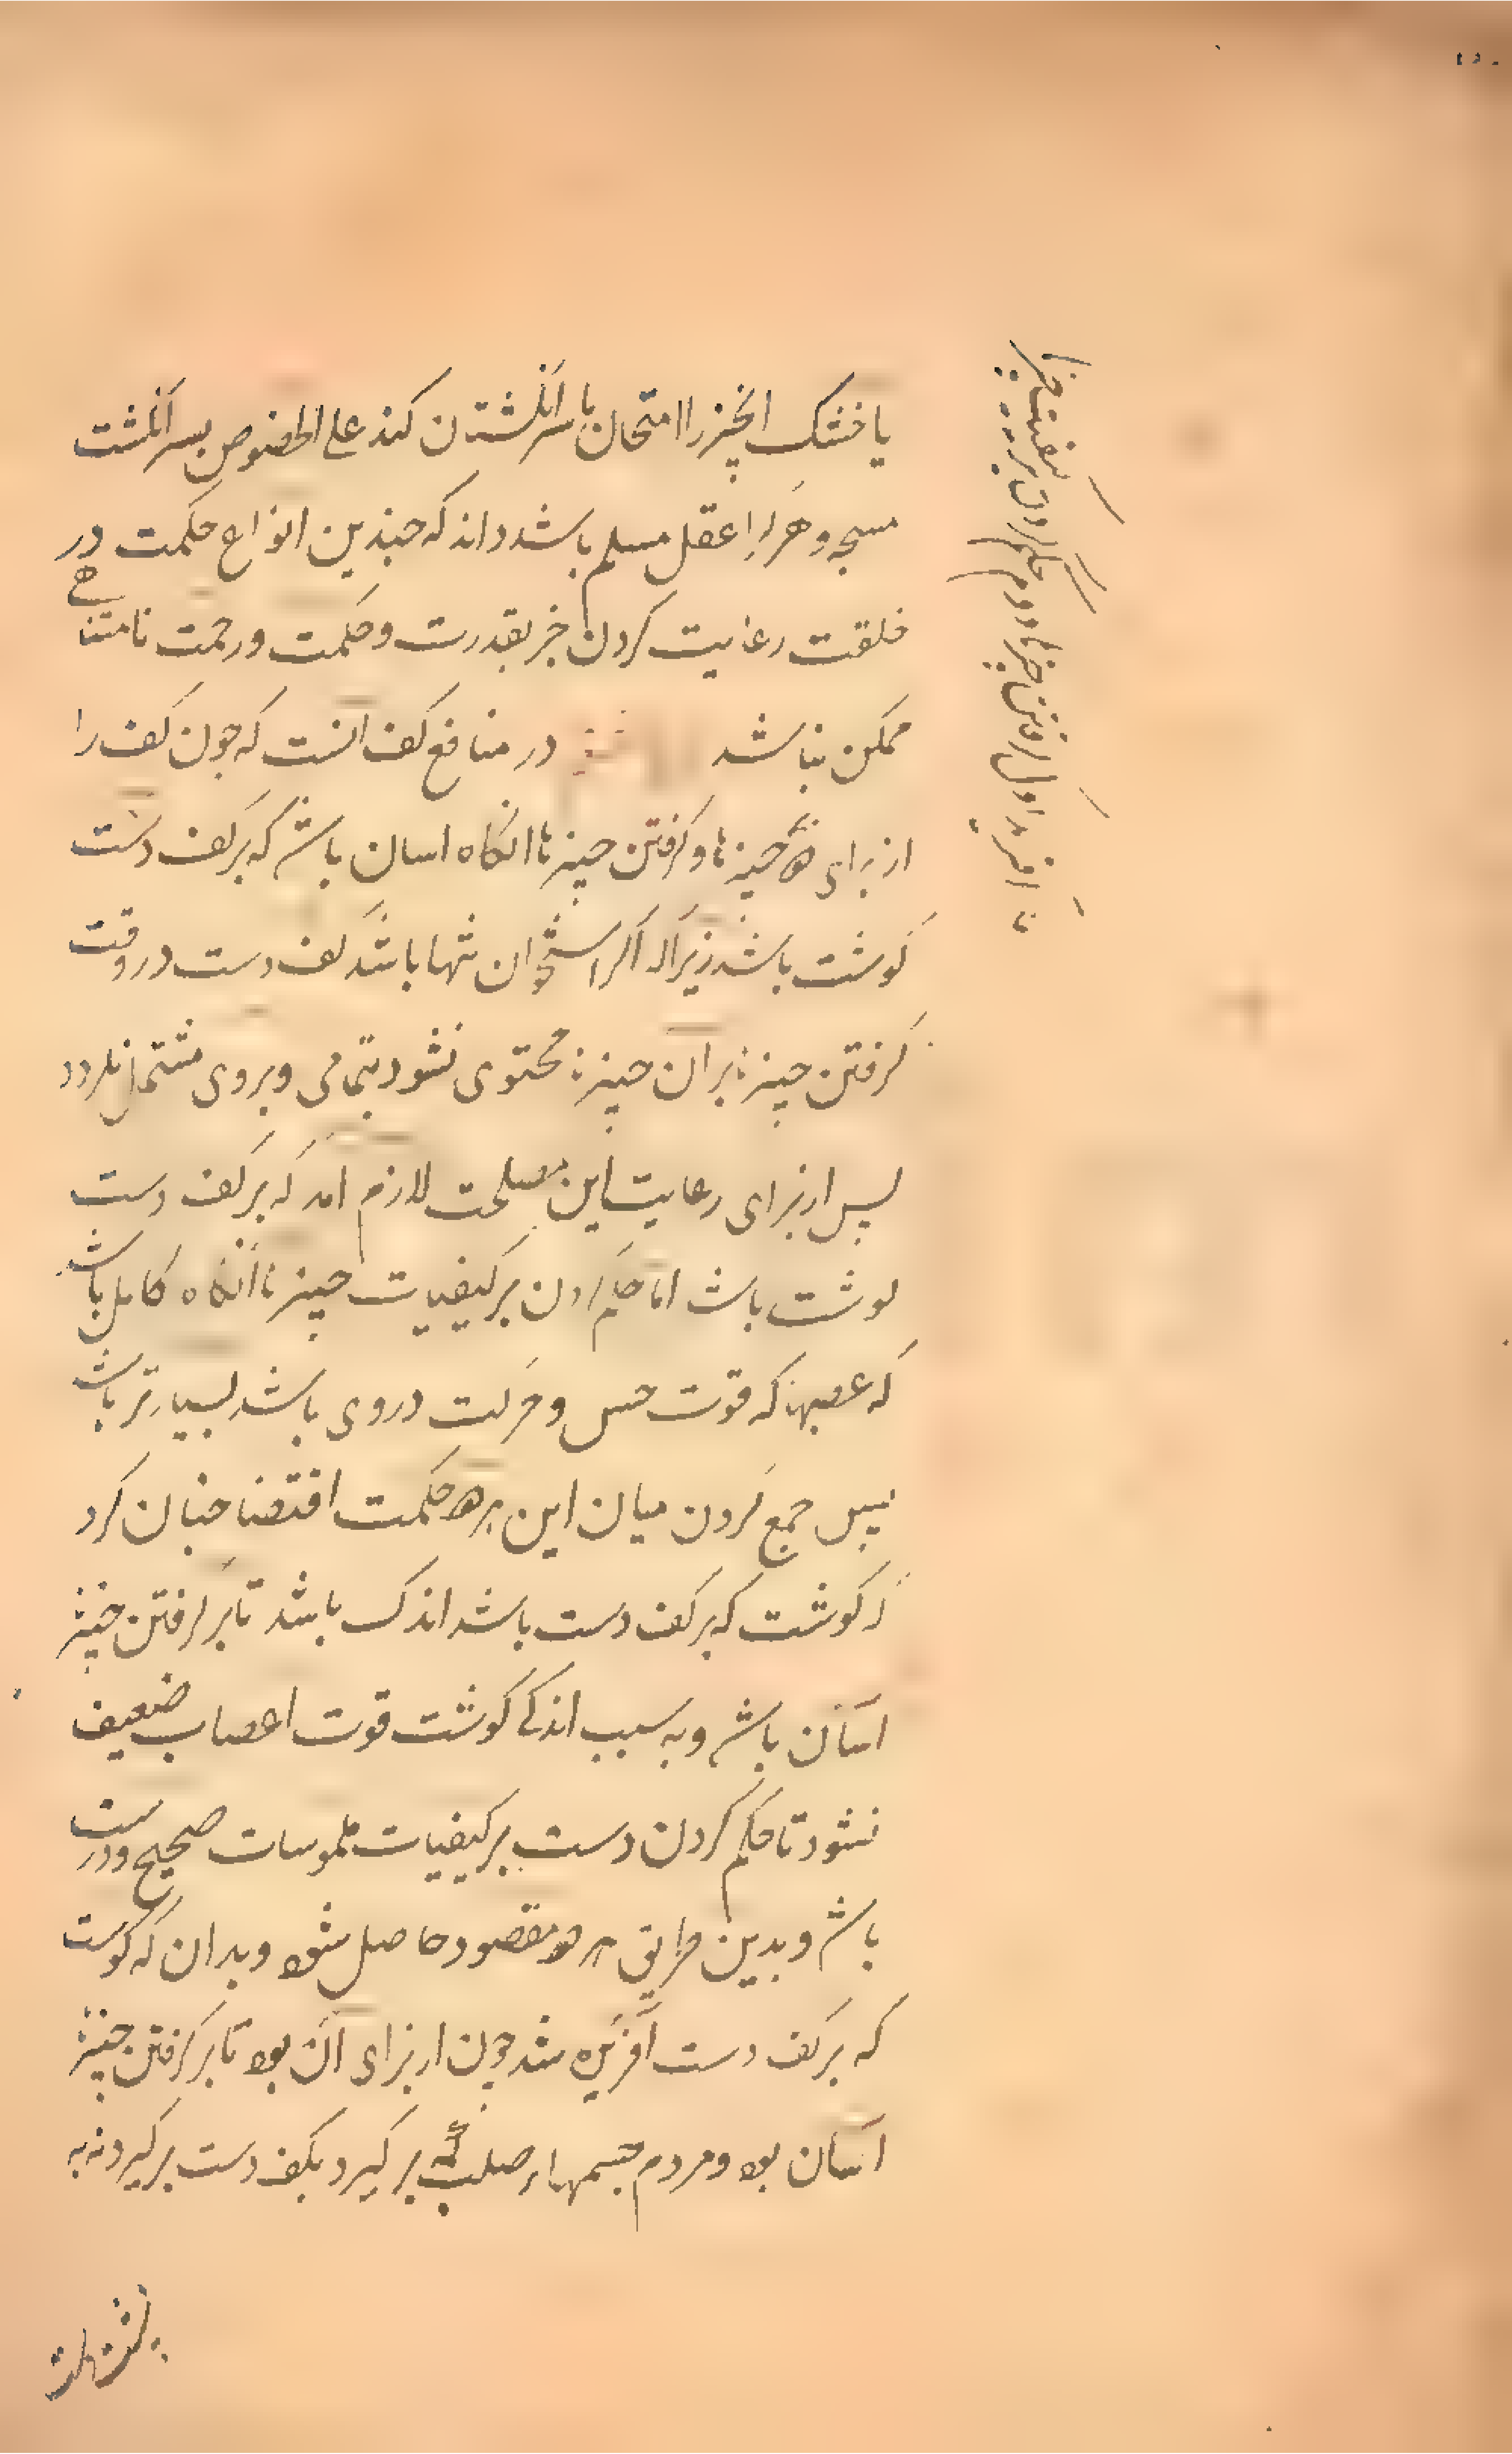 یا خشک انچیز را امتحان با سر انکشتان کند علی الخصوص بسر انکشت
مسبحه و هرکرا عقل مسلم باشد داند که چندین انواع حکمت در
خلقت رعایت کردن جز بقدرت و حکمت و رحمت نامتناهی
ممکن نباشد در منافع کف انست که چون کف را
از برای چیزها و کرفتن چیزها انکاه اسان باشد که بر کف دست
کوشت باشد زیراکه اکر استخوان تنها باشد کف دست در وقت
کرفتن چیزها بران چیزها محتوی نشود بتمامی و بر وی مشتمل نکردد
پس از برای رعایت این مصلحت لازم امد که بر کف دست
کوشت باشد اما حکم کردن بر کیفیات چیزها آنکاه کامل باشد
که عصبها که قوت حس و حرکت در وی باشد بسیارتر باشد
پس جمع کردن میان این هر دو حکمت اقتضا چنان کرد
که کوشت که بر کف دست باشد اندک باشد تا بر کرفتن چیزها
اسان باشد و به سبب اندکی کوشت قوت اعصاب ضعیف
نشود تا حکم کردن دست بر کیفیات ملموسات صحیح و درست
باشد و بدین طریق هر دو مقصود حاصل شود و بدان که کوشت
که بر کف دست آفریده شد چون از برای آن بود تا بر کرفتن چیزها
اسان بود و مردم جسمهاء صلب که بر کیرد بکف دست بر کیرد نه به